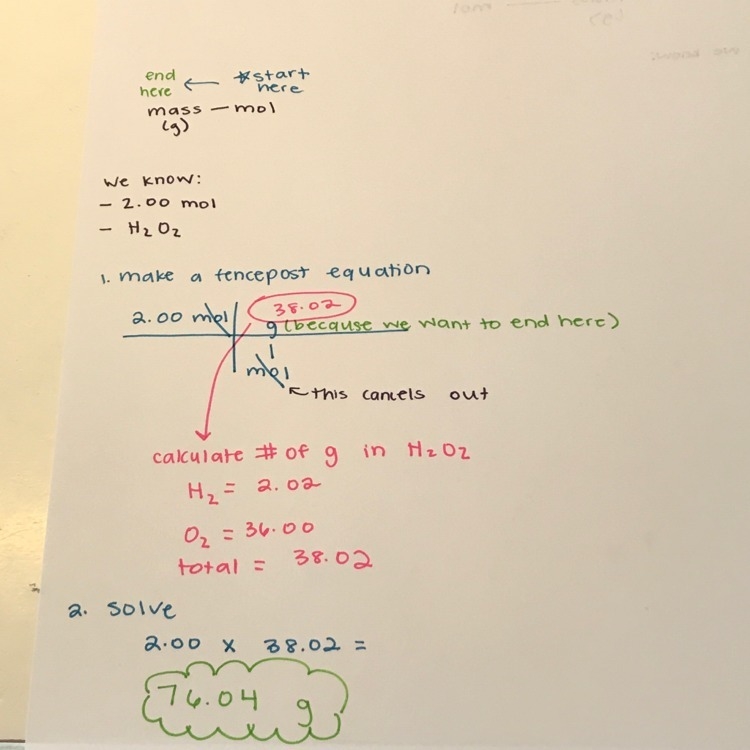 end ← *start
here here
mass — mol
(g)
we know:
- 2.00 mol
- H₂O₂
1. make a fencepost equation
2.00 mol 38.02
g (because we want to end here)
1
mol
←this cancels out
calculate # of g in H₂O₂
H₂ = 2.02
O₂ = 36.00
total = 38.02
2. solve
2.00 x 38.02 =
76.04 g